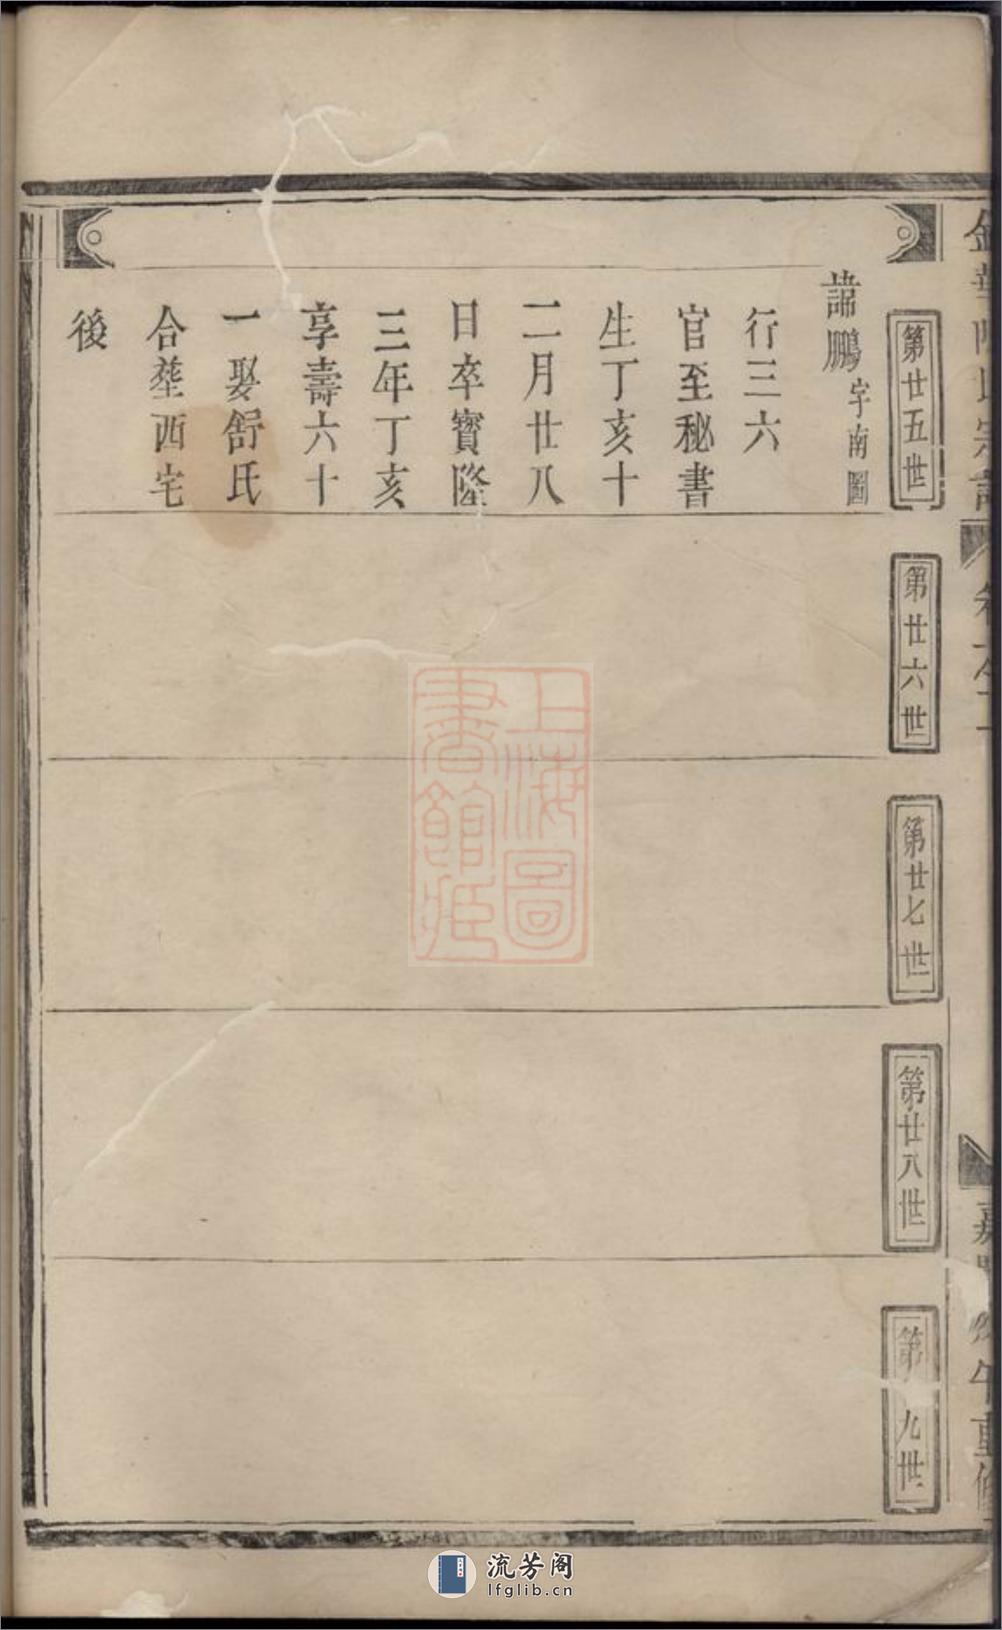 第廿五世
諱鵬字南圖
行三六
官至秘書
生丁亥十
二月廿八
日卒寳隆
三年丁亥
享壽六十
一娶舒氏
合塟西宅
後
第廿六世
第廿七世
第廿八世
第 九世
上海圖
書館藏
流芳阁
lfglib.cn